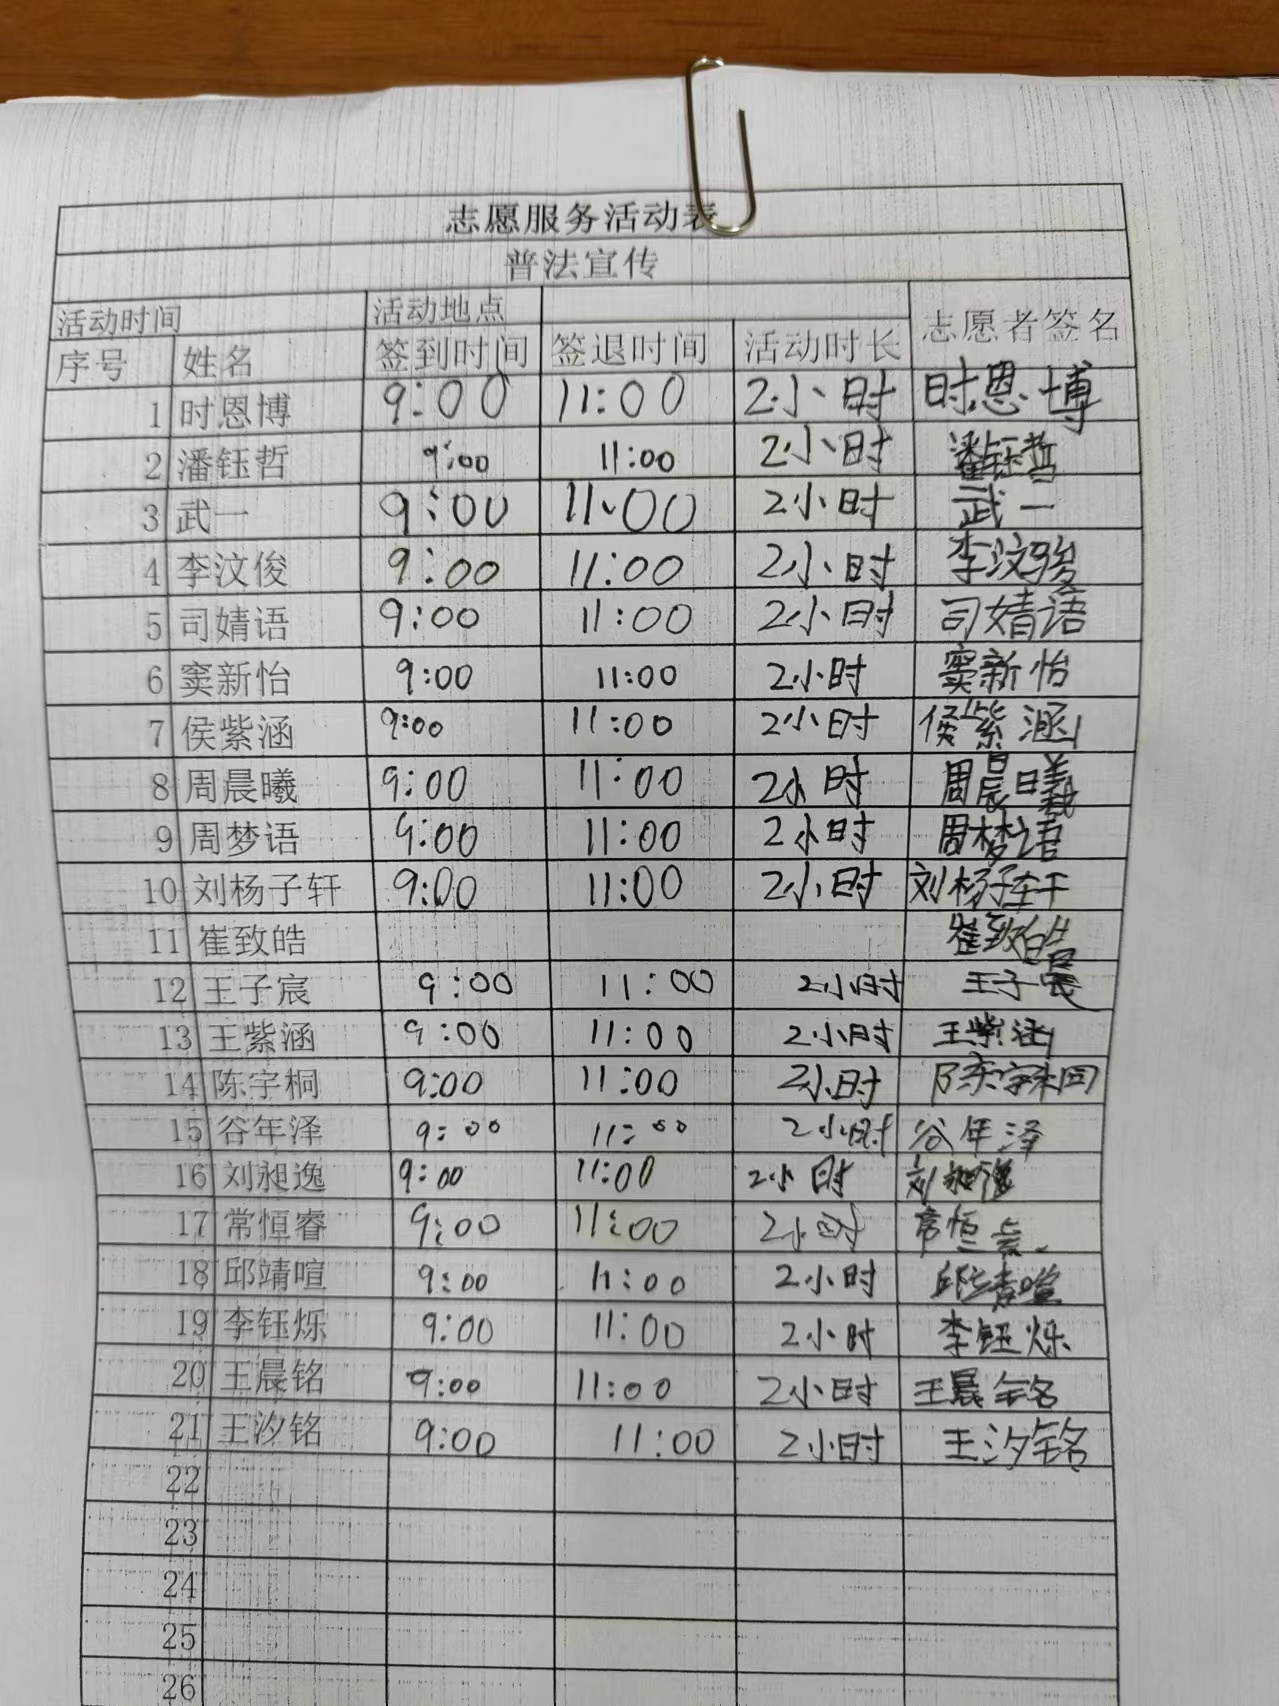 志愿服务活动表
普法宣传
活动时间 活动地点 志愿者签名
序号 姓名 签到时间 签退时间 活动时长
1 时恩博 9:00 11:00 2小时 时恩博
2 潘钰哲 9:00 11:00 2小时 潘钰哲
3 武一 9:00 11:00 2小时 武一
4 李汶俊 9:00 11:00 2小时 李汶骏
5 司婧语 9:00 11:00 2小时 司婧语
6 窦新怡 9:00 11:00 2小时 窦新怡
7 侯紫涵 9:00 11:00 2小时 侯紫涵
8 周晨曦 9:00 11:00 2小时 周晨曦
9 周梦语 9:00 11:00 2小时 周梦语
10 刘杨子轩 9:00 11:00 2小时 刘杨子轩
11 崔致皓 崔致皓
12 王子宸 9:00 11:00 2小时 王子宸
13 王紫涵 9:00 11:00 2小时 王紫涵
14 陈宇桐 9:00 11:00 2小时 陈宇桐
15 谷年泽 9:00 11:00 2小时 谷年泽
16 刘昶逸 9:00 11:00 2小时 刘昶逸
17 常恒睿 9:00 11:00 2小时 常恒
18 邱靖喧 9:00 11:00 2小时 邱靖喧
19 李钰烁 9:00 11:00 2小时 李钰烁
20 王晨铭 9:00 11:00 2小时 王晨铭
21 王汐铭 9:00 11:00 2小时 王汐铭
22
23
24
25
26